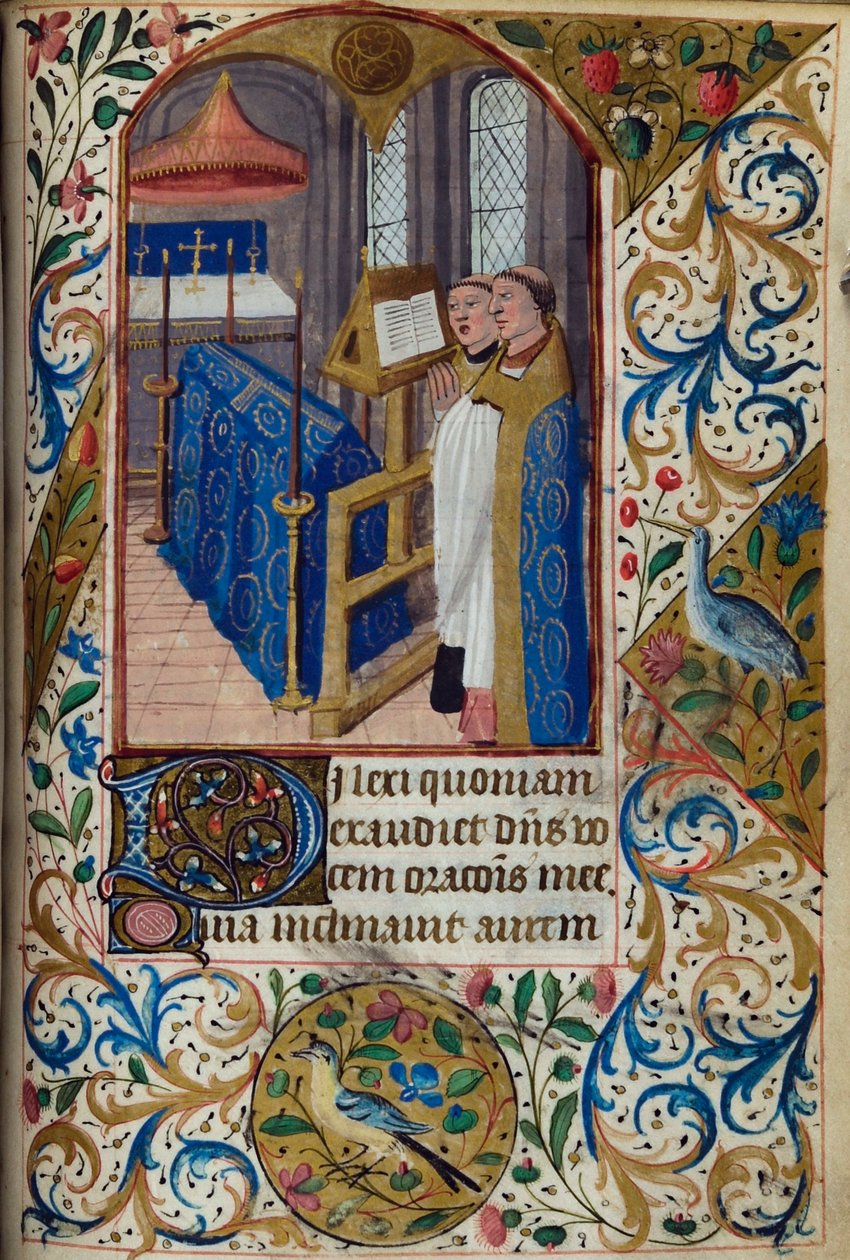 Dilexi quoniam
exaudiet dn̄s vo
cem oracōīs mee.
Quia inclinauit aurem